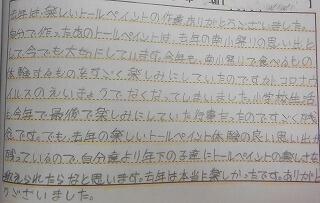 去年は、楽しいトールペイントの作成ありがとうございました。
自分で作ったあのトールペイントは、去年の南小祭りの思い出と
して今でも大切にしています。今年も、南小祭りで食べるもの
体験するものをすごく楽しみにしていたのですがコロナウ
イルスのえいきょうでなくなってしまいました。小学校生活
も今年で最後で楽しみにしていた行事だったのですごく残
念です。でも、去年の楽しいトールペイント体験の良い思い出が
残っているので、自分達より年下の子達にトールペイントの楽しさを
教えられたらなと思います。去年は本当に楽しかったです。ありがと
うございました。